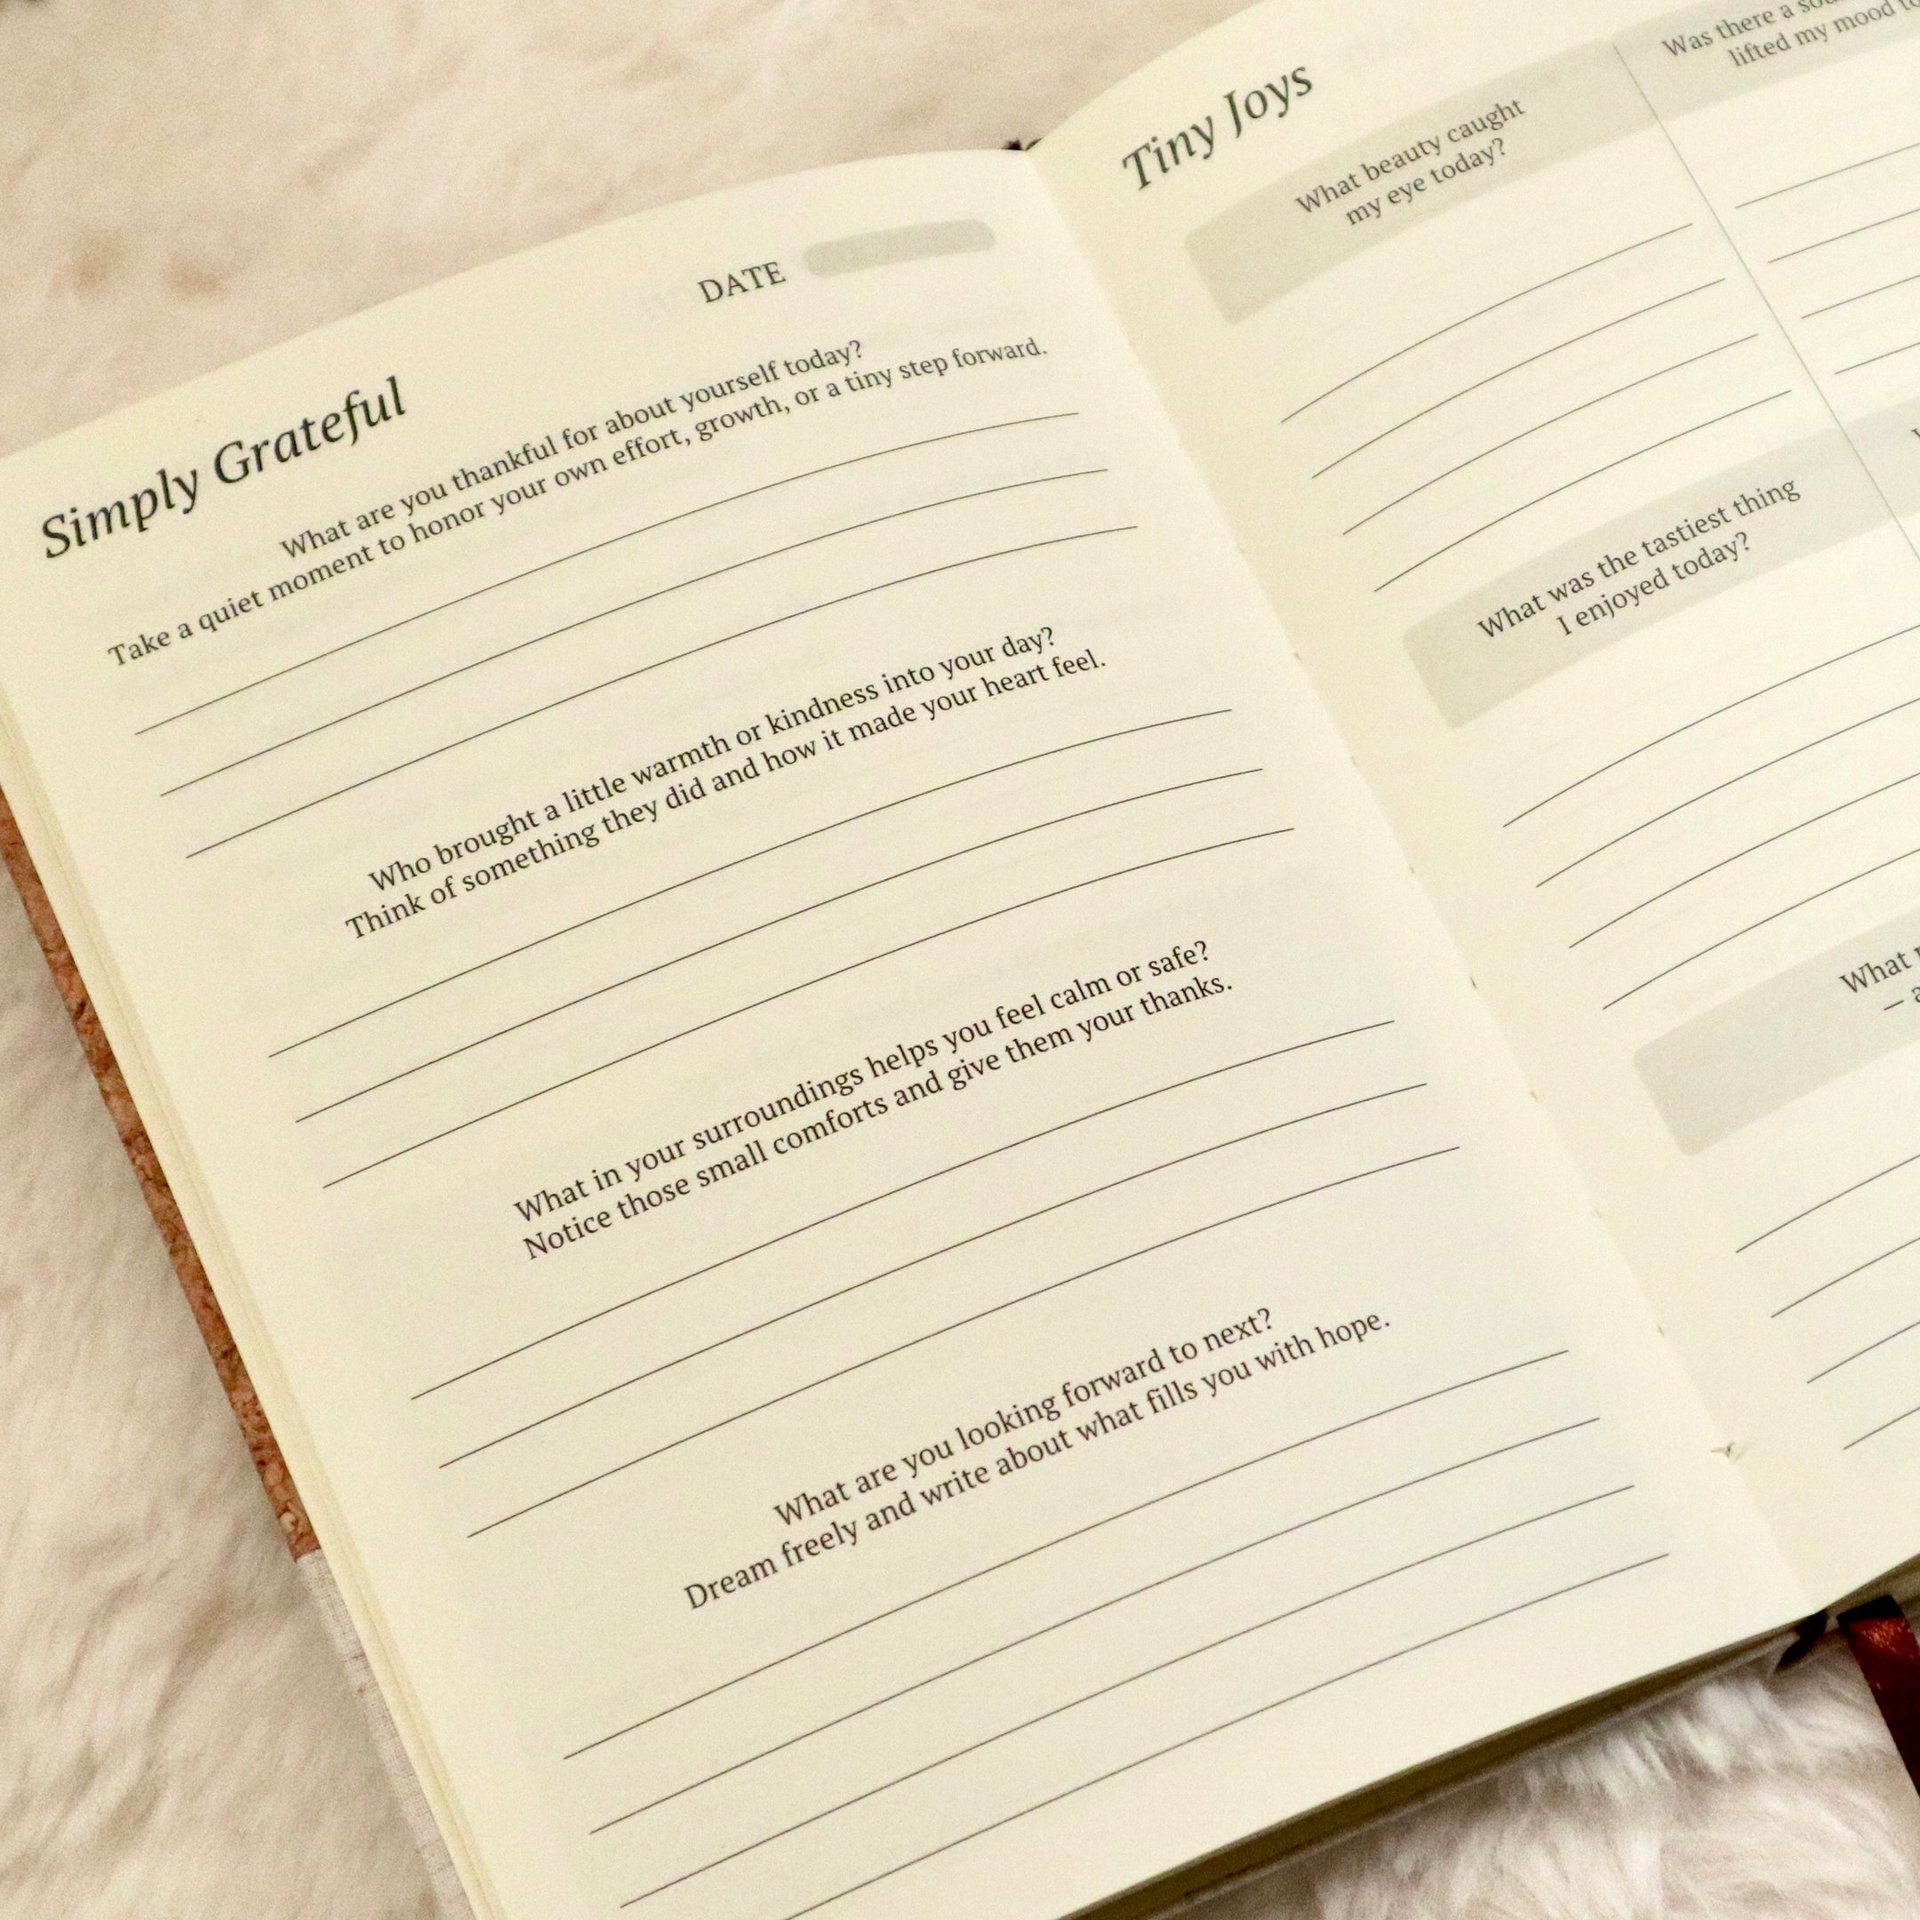 Simply Grateful
DATE
What are you thankful for about yourself today?
Take a quiet moment to honor your own effort, growth, or a tiny step forward.
Who brought a little warmth or kindness into your day?
Think of something they did and how it made your heart feel.
What in your surroundings helps you feel calm or safe?
Notice those small comforts and give them your thanks.
What are you looking forward to next?
Dream freely and write about what fills you with hope.
Tiny Joys
What beauty caught
my eye today?
Was there a
lifted my mood
What was the tastiest thing
I enjoyed today?
What